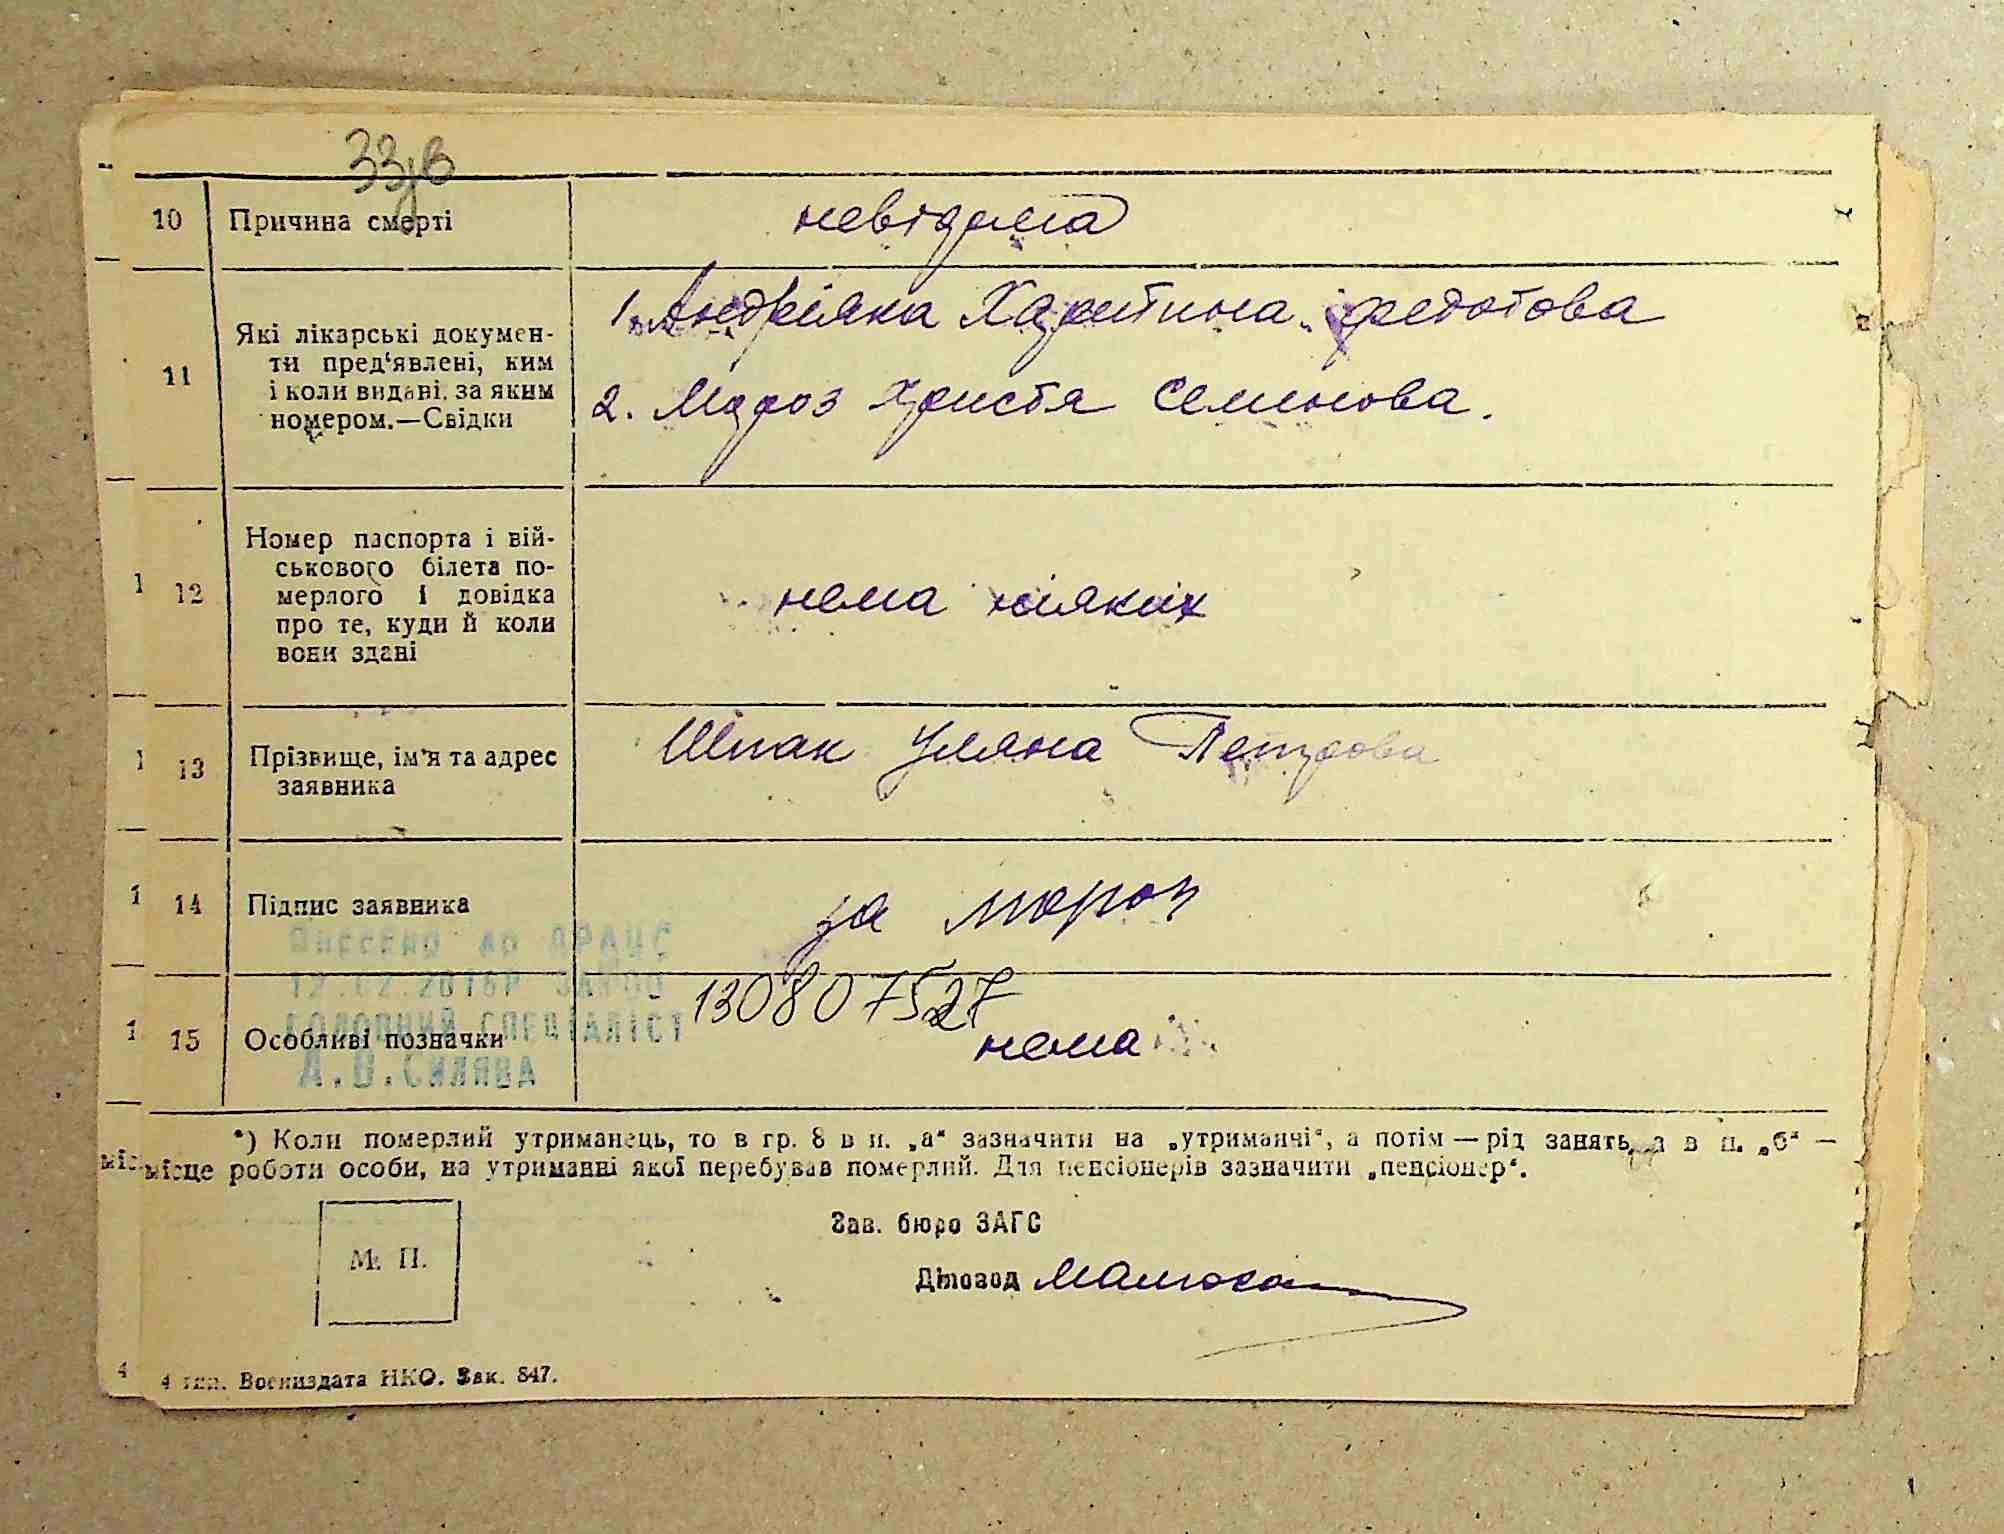 33зв
10 Причина смерті невідома
11 Які лікарські докумен-
ти пред'явлені, ким
і коли видані, за яким
номером.—Свідки
1. Андріяка Харитина Федотова
2. Мороз Христя Семенова.
12 Номер паспорта і вій-
ськового білета по-
мерлого і довідка
про те, куди й коли
вони здані
нема ніяких
13 Прізвище, ім'я та адрес
заявника
Шпак Уляна Петрова
14 Підпис заявника за мороз
Внесено до ДРАЦС
12.02.2016р
130807527
головний спеціаліст
15 Особливі позначки нема
А.В.Силява
*) Коли померлий утриманець, то в гр. 8 в п. „а“ зазначити на „утриманні“, а потім — рід занять, а в п. „б“ —
місце роботи особи, на утриманні якої перебував померлий. Для пенсіонерів зазначити „пенсіонер“.
М. П.
Зав. бюро ЗАГС
Діловод
4 тип. Воениздата НКО. Зак. 847.